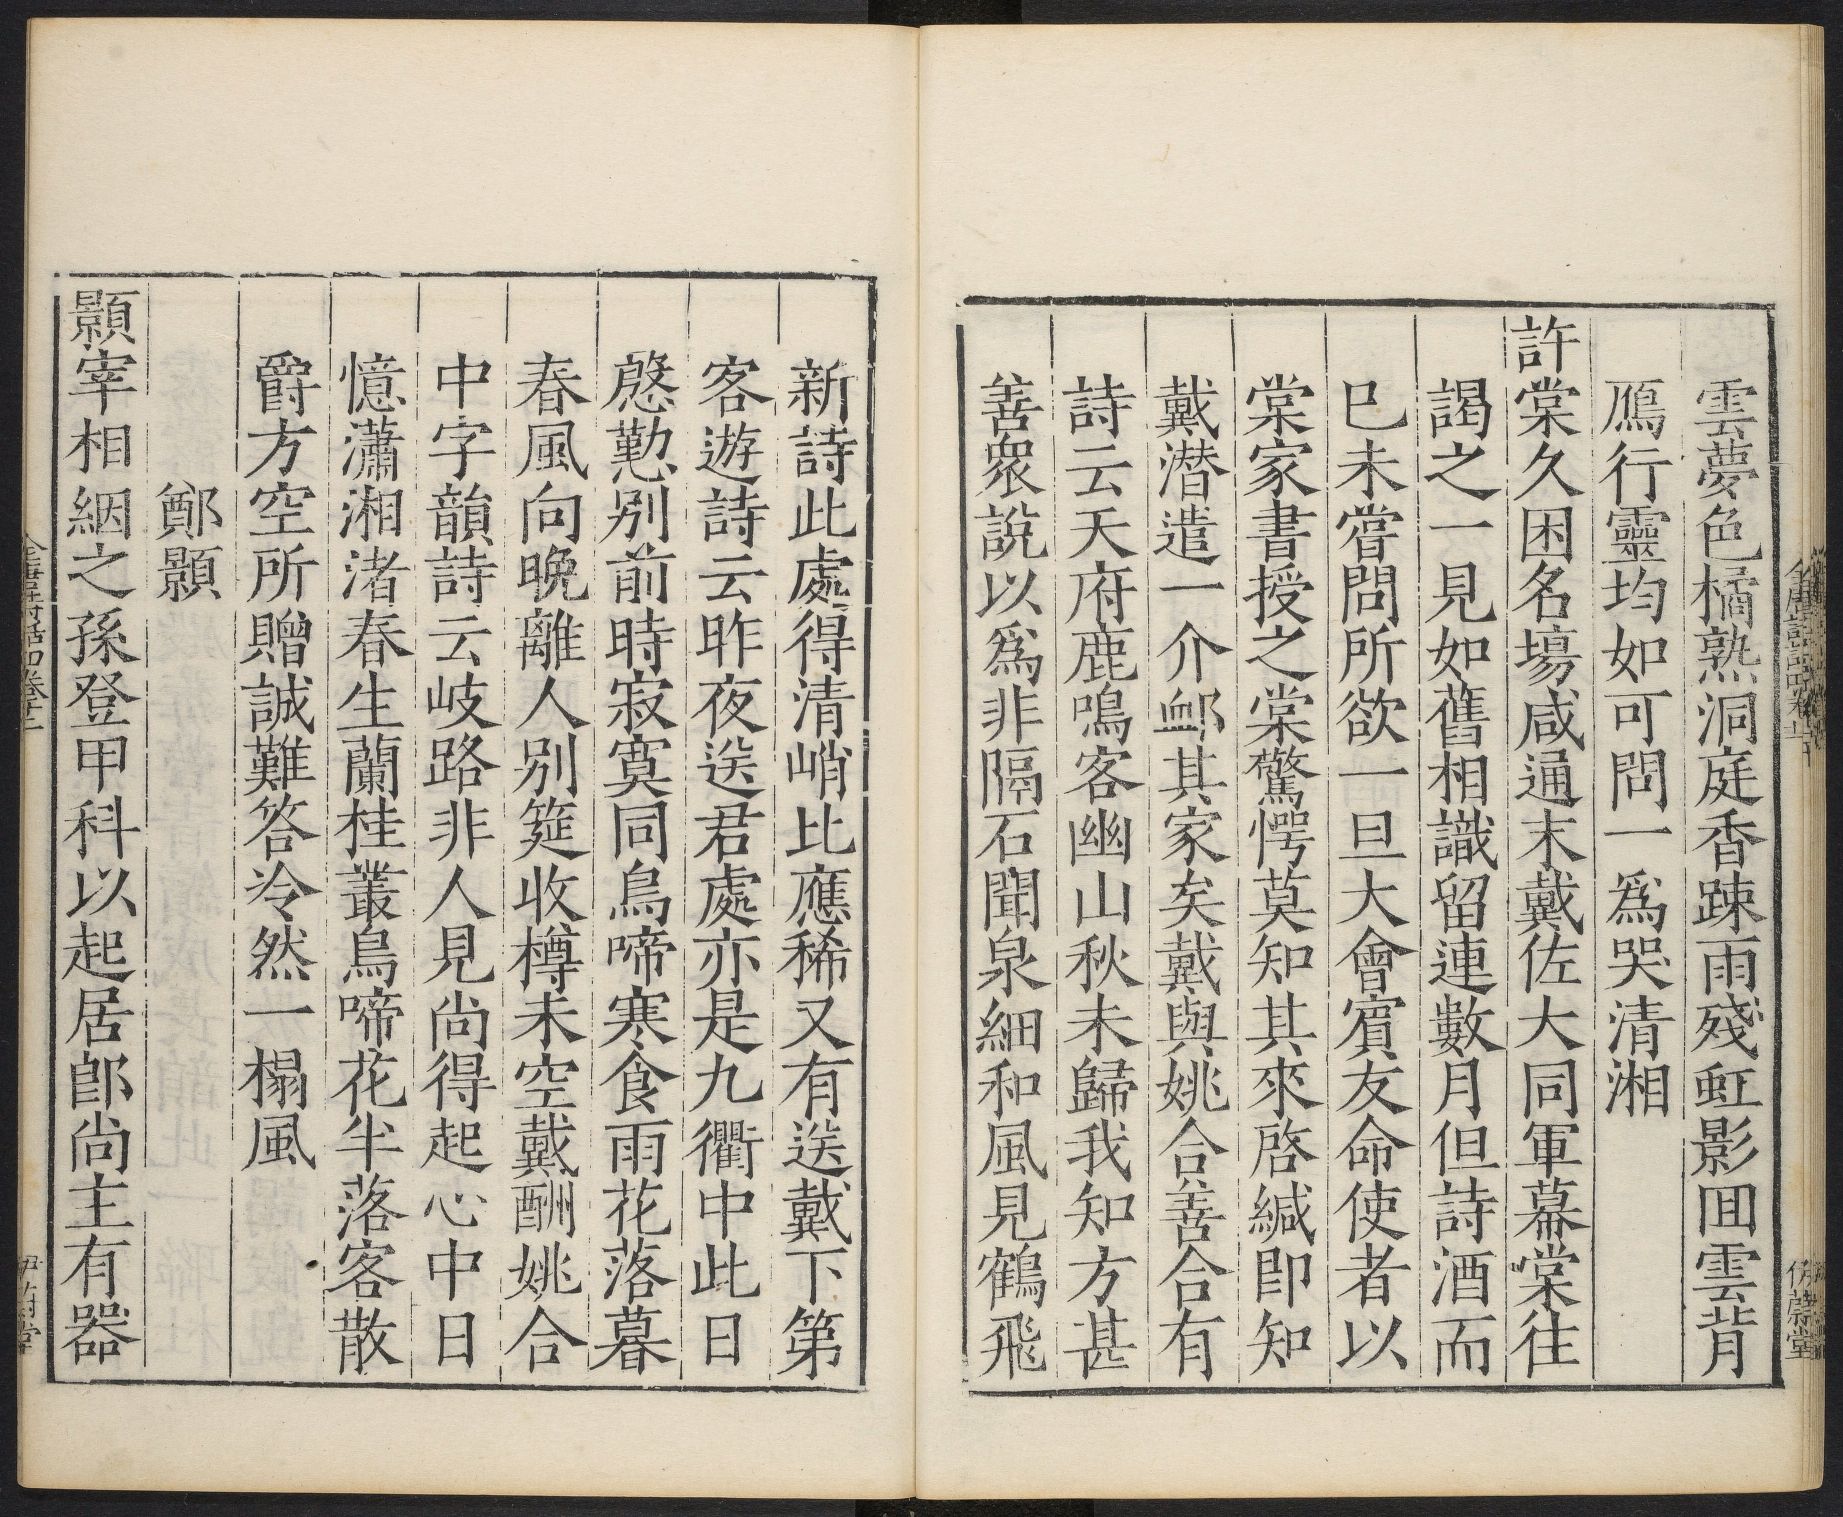 雲夢色橘熟洞庭香踈雨殘虹影囬雲背
鴈行靈均如可問一爲哭清湘
許棠久困名塲咸通末戴佐大同軍幕棠往
謁之一見如舊相識留連數月但詩酒而
巳未嘗問所欲一旦大會賔友命使者以
棠家書授之棠驚愕莫知其來啓緘卽知
戴潜遣一介䘏其家矣戴與姚合善合有
詩云天府鹿鳴客幽山秋未歸我知方甚
善衆說以爲非隔石聞泉細和風見鶴飛
新詩此處得清峭比應稀又有送戴下第
客遊詩云昨夜送君處亦是九衢中此日
慇懃别前時寂寞同鳥啼寒食雨花落暮
春風向晚離人别筵收樽未空戴酬姚合
中字韻詩云岐路非人見尚得起心中日
憶瀟湘渚春生蘭桂叢鳥啼花半落客散
爵方空所贈誠難答冷然一榻風
鄭顥
顥宰相絪之孫登甲科以起居郎尚主有器